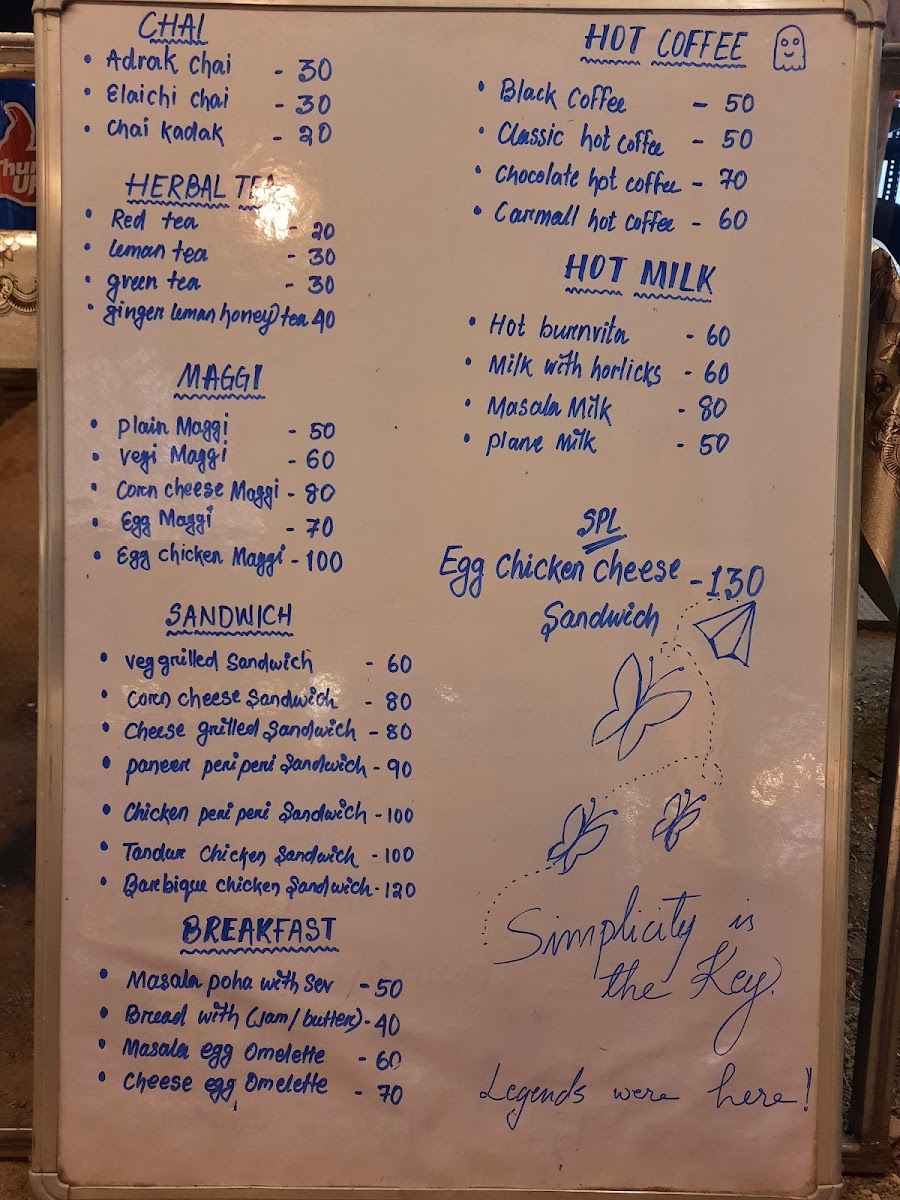 CHAI
• Adrak chai - 30
• Elaichi chai - 30
• Chai kadak - 20
HERBAL TEA
• Red tea - 20
• leman tea - 30
• green tea - 30
• ginger leman honey) tea 40
MAGGI
• Plain Maggi - 50
• vegi Maggi - 60
• Corn cheese Maggi - 80
• Egg Maggi - 70
• Egg chicken Maggi - 100
SANDWICH
• veg grilled Sandwich - 60
• Corn cheese Sandwich - 80
• Cheese grilled Sandwich - 80
• paneer peri peri Sandwich - 90
• Chicken peri peri Sandwich - 100
• Tandur chicken Sandwich - 100
• Barbique chicken Sandwich - 120
BREAKFAST
• Masala poha with Sev - 50
• Bread with (Jam/butter) - 40
• Masala egg Omelette - 60
• Cheese egg Omelette - 70
HOT COFFEE
• Black Coffee - 50
• Classic hot coffee - 50
• Chocolate hot coffee - 70
• Carmall hot coffee - 60
HOT MILK
• Hot burnvita - 60
• Milk with horlicks - 60
• Masala Milk - 80
• plane Milk - 50
SPL
Egg Chicken Cheese - 130
Sandwich
Simplicity is
the Key.
Legends were here!
Thum
UP